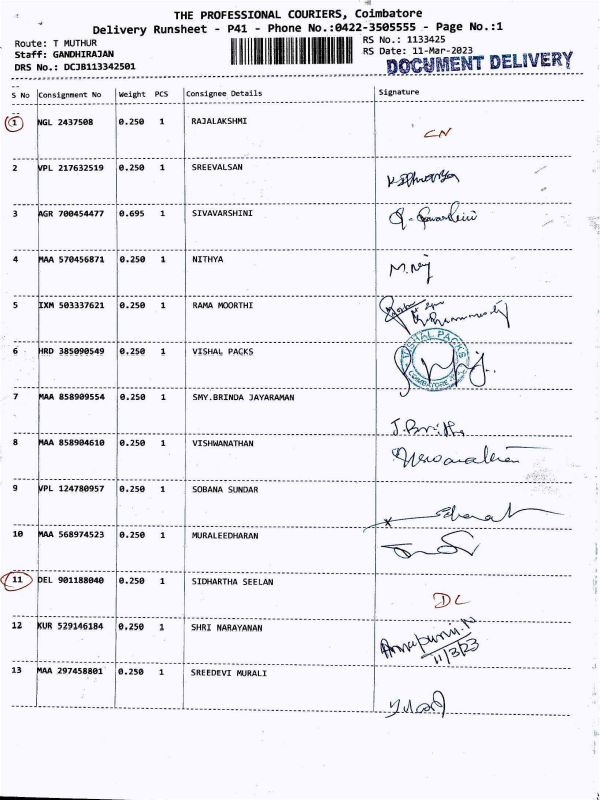 THE PROFESSIONAL COURIERS, Coimbatore
Delivery Runsheet - P41 - Phone No.:0422-3505555 - Page No.:1
Route: T MUTHUR
RS No.: 1133425
Staff: GANDHIRAJAN
RS Date: 11-Mar-2023
DRS No.: DCJB113342501
DOCUMENT DELIVERY
S No Consignment No Weight PCS Consignee Details Signature
1 NGL 2437508 0.250 1 RAJALAKSHMI
CN
2 VPL 217632519 0.250 1 SREEVALSAN
3 AGR 700454477 0.695 1 SIVAVARSHINI
4 MAA 570456871 0.250 1 NITHYA
5 IXM 503337621 0.250 1 RAMA MOORTHI
6 HRD 385090549 0.250 1 VISHAL PACKS
VISHAL PACKS
COIMBATORE
7 MAA 858909554 0.250 1 SMY.BRINDA JAYARAMAN
8 MAA 858904610 0.250 1 VISHWANATHAN
9 VPL 124780957 0.250 1 SOBANA SUNDAR
10 MAA 568974523 0.250 1 MURALEEDHARAN
11 DEL 901188040 0.250 1 SIDHARTHA SEELAN
DL
12 KUR 529146184 0.250 1 SHRI NARAYANAN
11/3/23
13 MAA 297458801 0.250 1 SREEDEVI MURALI